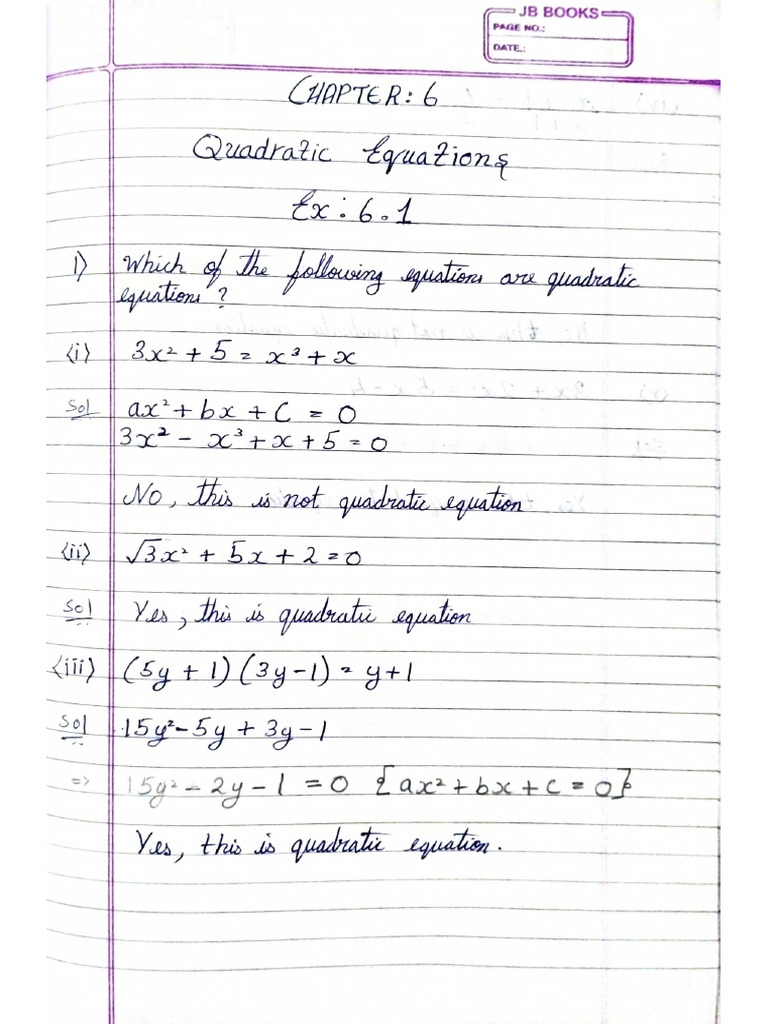 JB BOOKS
PAGE NO.:
DATE.:
CHAPTER: 6
Quadratic Equations
Ex: 6.1
1) Which of the following equations are quadratic
equations?
(i) 3x² + 5 = x³ + x
Sol ax² + bx + C = 0
3x² - x³ + x + 5 = 0
No, this is not quadratic equation
(ii) √3x² + 5x + 2 = 0
Sol Yes, this is quadratic equation
(iii) (5y + 1) (3y - 1) = y + 1
Sol 15y² - 5y + 3y - 1
=> 15y² - 2y - 1 = 0 {ax² + bx + c = 0}
Yes, this is quadratic equation.